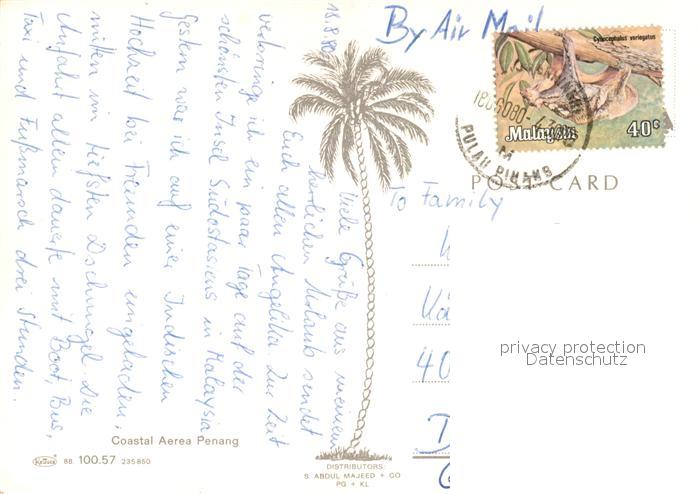 By Air Mail
18.8.80
Viele Grüße aus meinem
herrlichen Urlaub sendet
Euch allen Angelika. Zur Zeit
verbringe ich ein paar Tage auf der
schönsten Insel Südostasiens in Malaysia
Gestern war ich auf einer Indischen
Hochzeit bei Freunden eingeladen,
mitten im tiefsten Dschungel. Die
Anfahrt allein dauerte mit Boot, Bus,
Taxi und Fußmarsch drei Stunden.
Cynocephalus variegatus
Malaysia 40c
PULAU PINANG
POST CARD
To Family
40
privacy protection
Datenschutz
Coastal Aerea Penang
88 100.57 235850
DISTRIBUTORS:
S. ABDUL MAJEED + CO
PG + KL